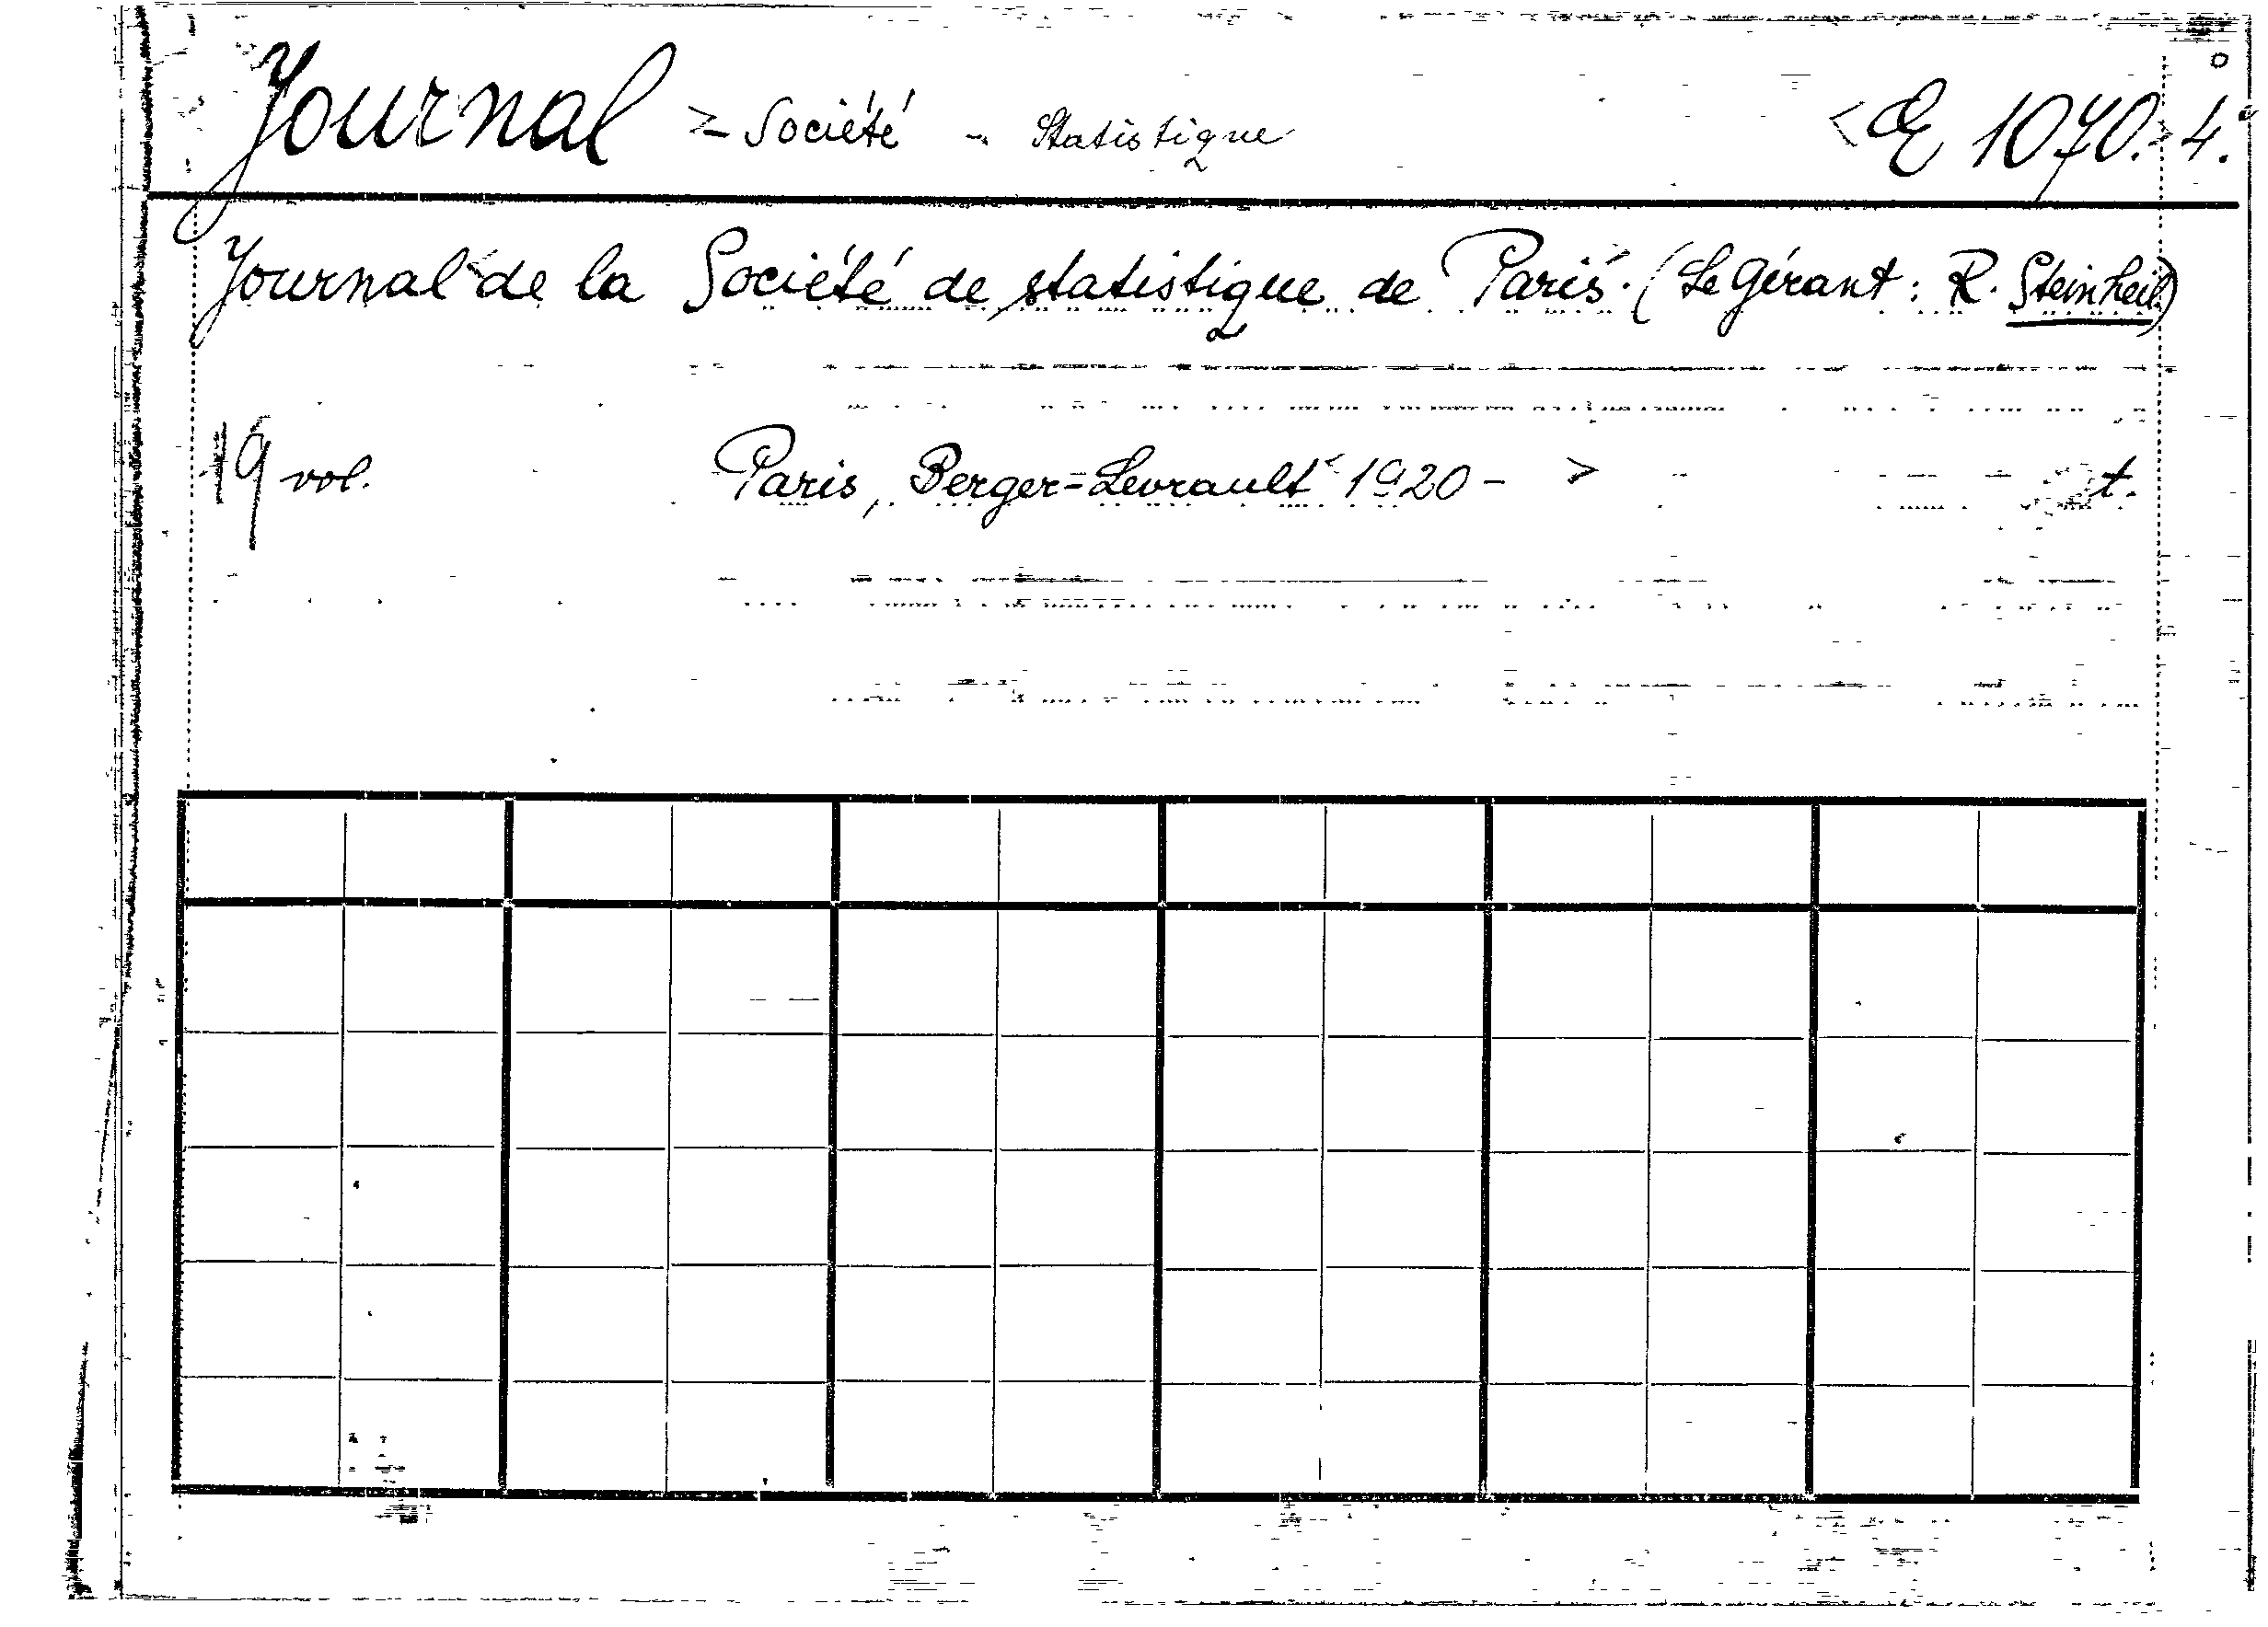 Journal = Société - Statistique <Œ 1070.> 4.°
Journal de la Société de statistique de Paris. (Le Gérant: R. Steinheil)
19 vol. Paris, Berger=Levrault 1920- > t.